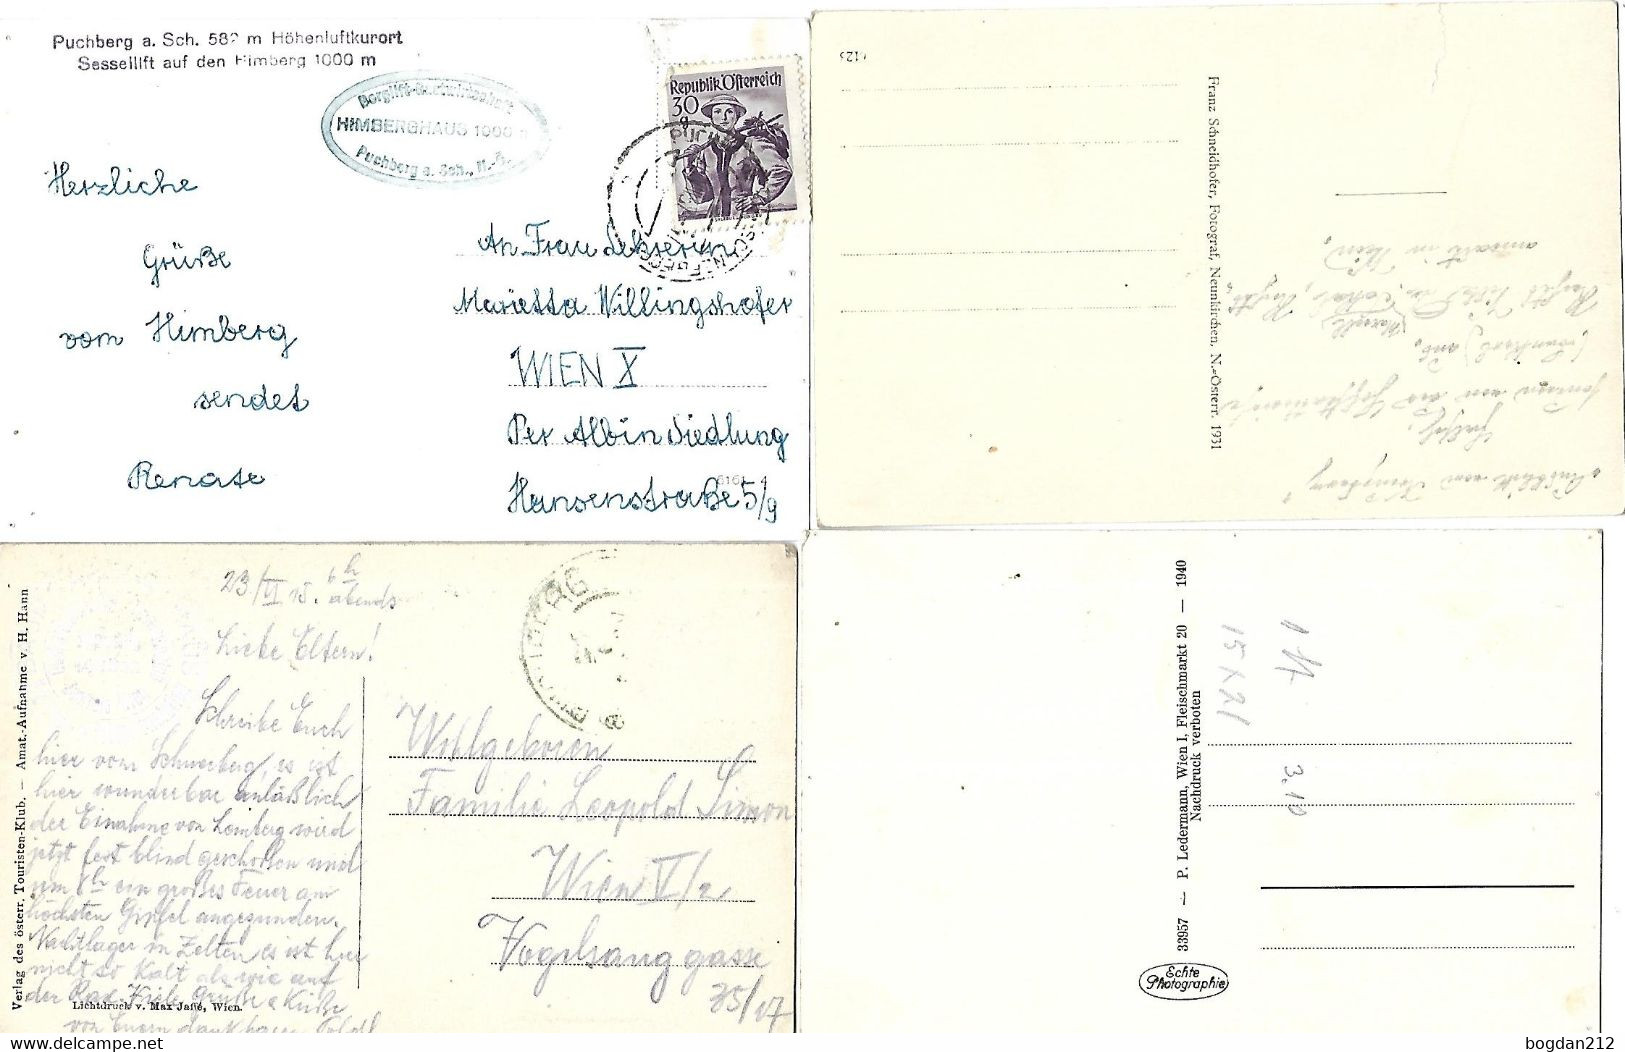 Puchberg a. Sch. 582 m Höhenluftkurort
Sessellift auf den Himberg 1000 m
HIMBERGHAUS 1000 m
Puchberg a. Sch., N.-Ö.
Republik Österreich
30
g
Herzliche
Grüße
vom Himberg
sendet
Renate
An Frau Lehrerin
Marietta Willingshofer
WIEN X
Per Albin Siedlung
Hansenstraße 5/9
Franz Schneidhofer, Fotograf, Neunkirchen, N.-Österr. 1931
Verlag des österr. Touristen-Klub. – Amat.-Aufnahme v. H. Hann
23./VI 15. 6h abends
Liebe Eltern!
Schreibe Euch
hier vom Schneeberg, es ist
hier wunderbar anläßlich
der Einahme von Lemberg wird
jetzt fest blind geschoßen und
um 8h ein großes Feuer am
höchsten Gipfel angezunden.
Nachtlager in Zelten es ist hier
nicht so kalt als wie auf
der Rax. Viele Grüße u Küße
von Euern dankbaren Poldl
Lichtdruck v. Max Jaffé, Wien.
Wohlgeboren
Familie Leopold Simon
Wien V/2
Vogelsanggasse
35/17
33957 — P. Ledermann, Wien I, Fleischmarkt 20 — 1940
Nachdruck verboten
Echte
Photographie
15 x 21
3.10
bogdan212